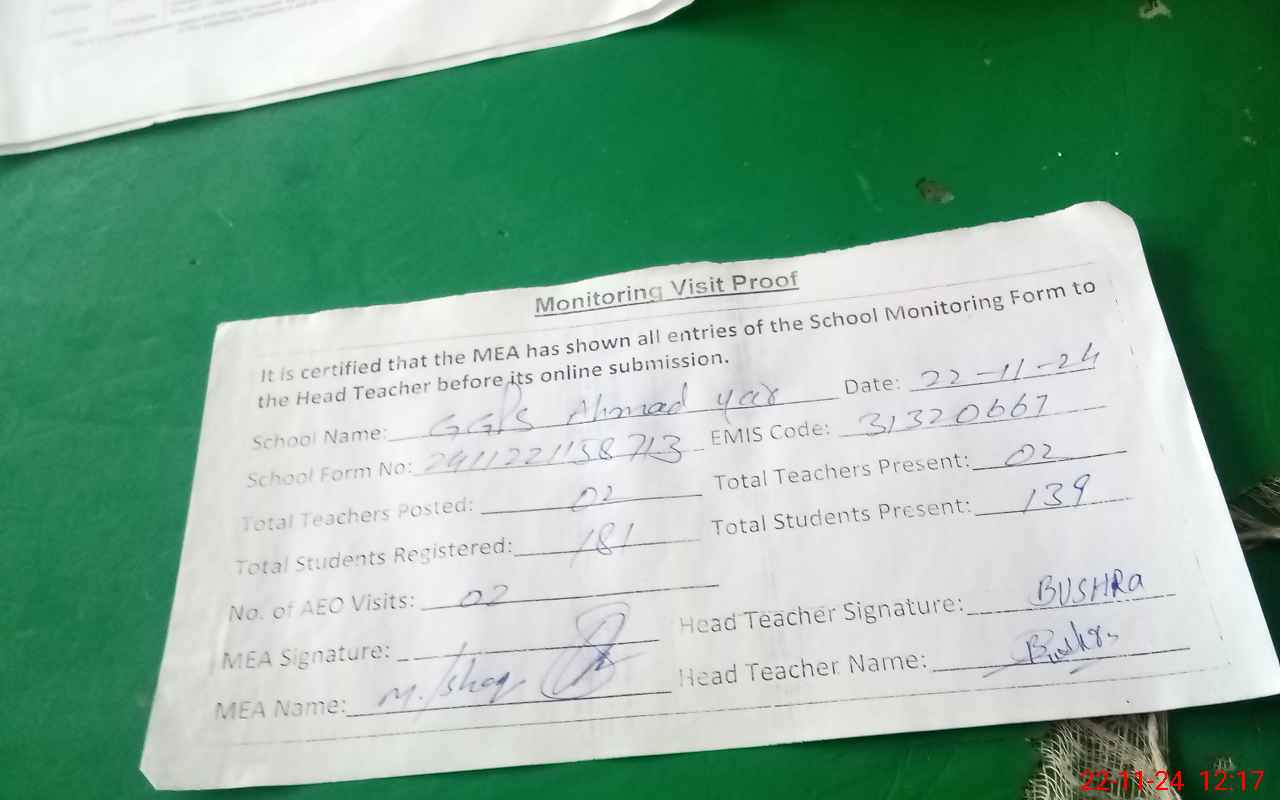 Monitoring Visit Proof
It is certified that the MEA has shown all entries of the School Monitoring Form to
the Head Teacher before its online submission.
School Name: GGPS Ahmad yar Date: 22-11-24
School Form No: 2411221158713 EMIS Code: 31320667
Total Teachers Posted: 02 Total Teachers Present: 02
Total Students Registered: 181 Total Students Present: 139
No. of AEO Visits: 02
MEA Signature: Head Teacher Signature: BUSHRa
MEA Name: M. Ishaq Head Teacher Name: Bushra
22-11-24 12:17